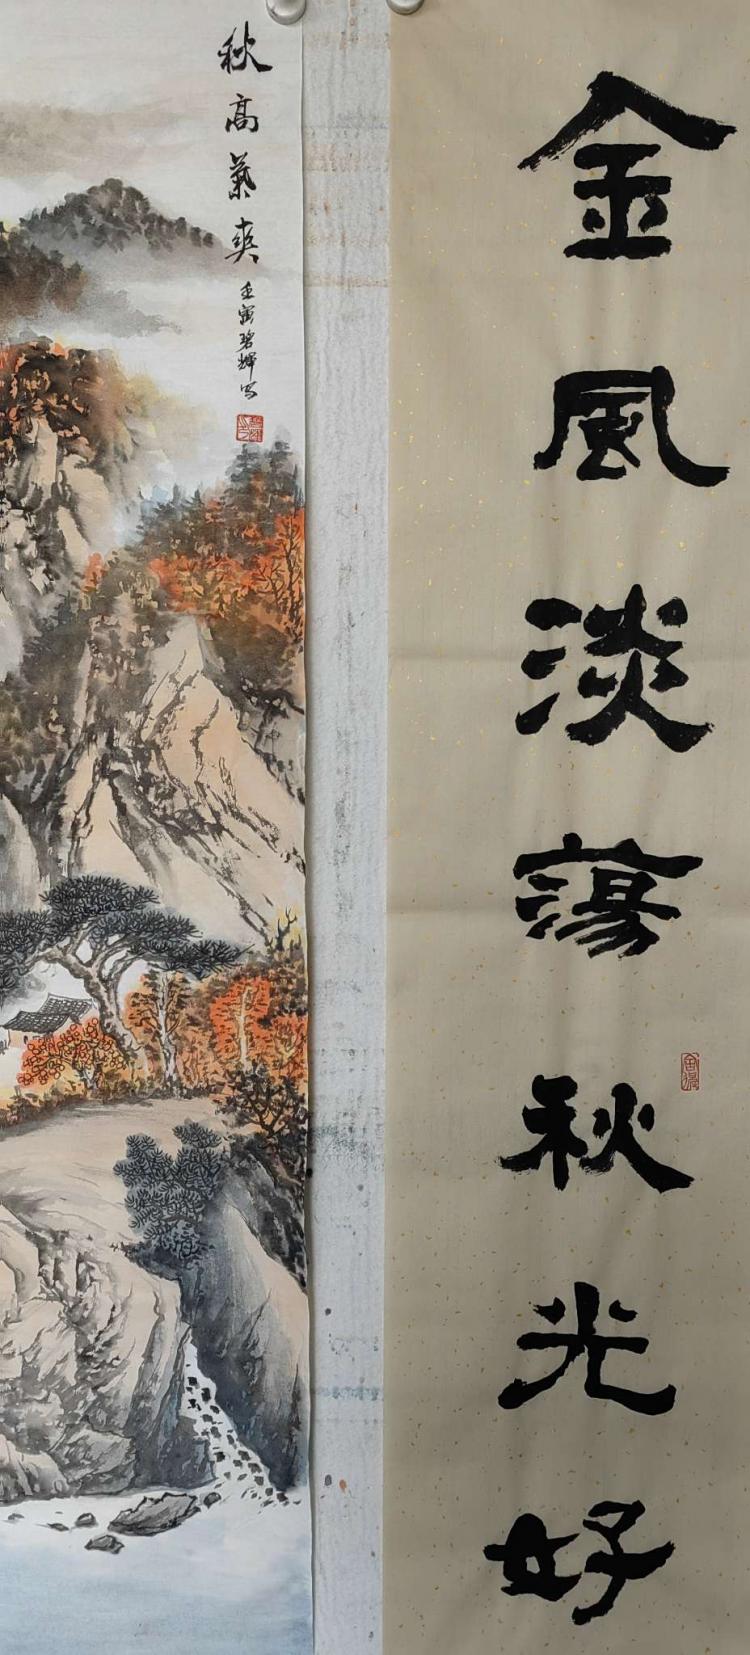 金風淡蕩秋光好
秋高氣爽
壬寅碧輝写